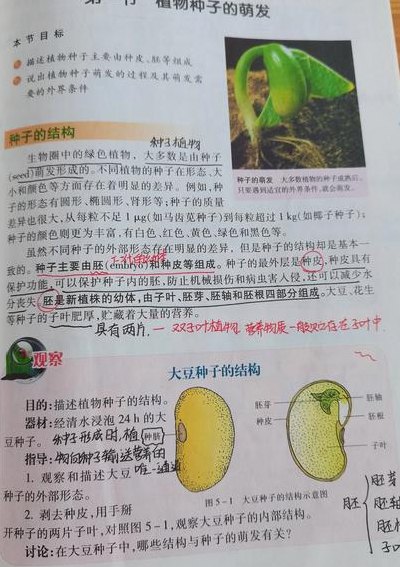 第一节 植物种子的萌发
本节目标
描述植物种子主要由种皮、胚等组成
说出植物种子萌发的过程及其萌发需
要的外界条件
种子的萌发 大多数植物的种子成熟后，
只要遇到适宜的外界条件，就会萌发。
种子的结构
种子植物
生物圈中的绿色植物，大多数是由种子
(seed)萌发形成的。不同植物的种子在形态、大
小和颜色等方面存在着明显的差异。例如，种
子的形态有圆形、椭圆形、肾形等；种子的质量
差异也很大，从每粒不足1 μg(如马齿苋种子)到每粒超过1 kg(如椰子种子)；
种子的颜色则更为丰富，有白色、红色、黄色、绿色和黑色等。
虽然不同种子的外部形态存在明显的差异，但是种子的结构却是基本一
致的。种子主要由胚(embryo)和种皮等组成。种子的最外层是种皮，种皮具有
保护功能，可以保护种子内的胚，防止机械损伤和病虫害入侵，还可以减少水
分丧失。胚是新植株的幼体，由子叶、胚芽、胚轴和胚根四部分组成。大豆、花生
等种子的子叶肥厚，贮藏着大量的营养。
具有两片. — 双子叶植物 营养物质一般贮存在子叶中
观察
大豆种子的结构
目的：描述植物种子的结构。
器材：经清水浸泡24 h的大
豆种子。
种子形成因，植 种脐
指导：
物向种子输送营养的
唯一通道
1. 观察和描述大豆
种子的外部形态。
2. 剥去种皮，用手掰
开种子的两片子叶，对照图5-1，观察大豆种子的内部结构。
讨论：在大豆种子中，哪些结构与种子的萌发有关？
胚芽
种皮
胚轴
胚根
子叶
图5-1 大豆种子的结构示意图
胚
胚芽
胚轴
胚根
子叶